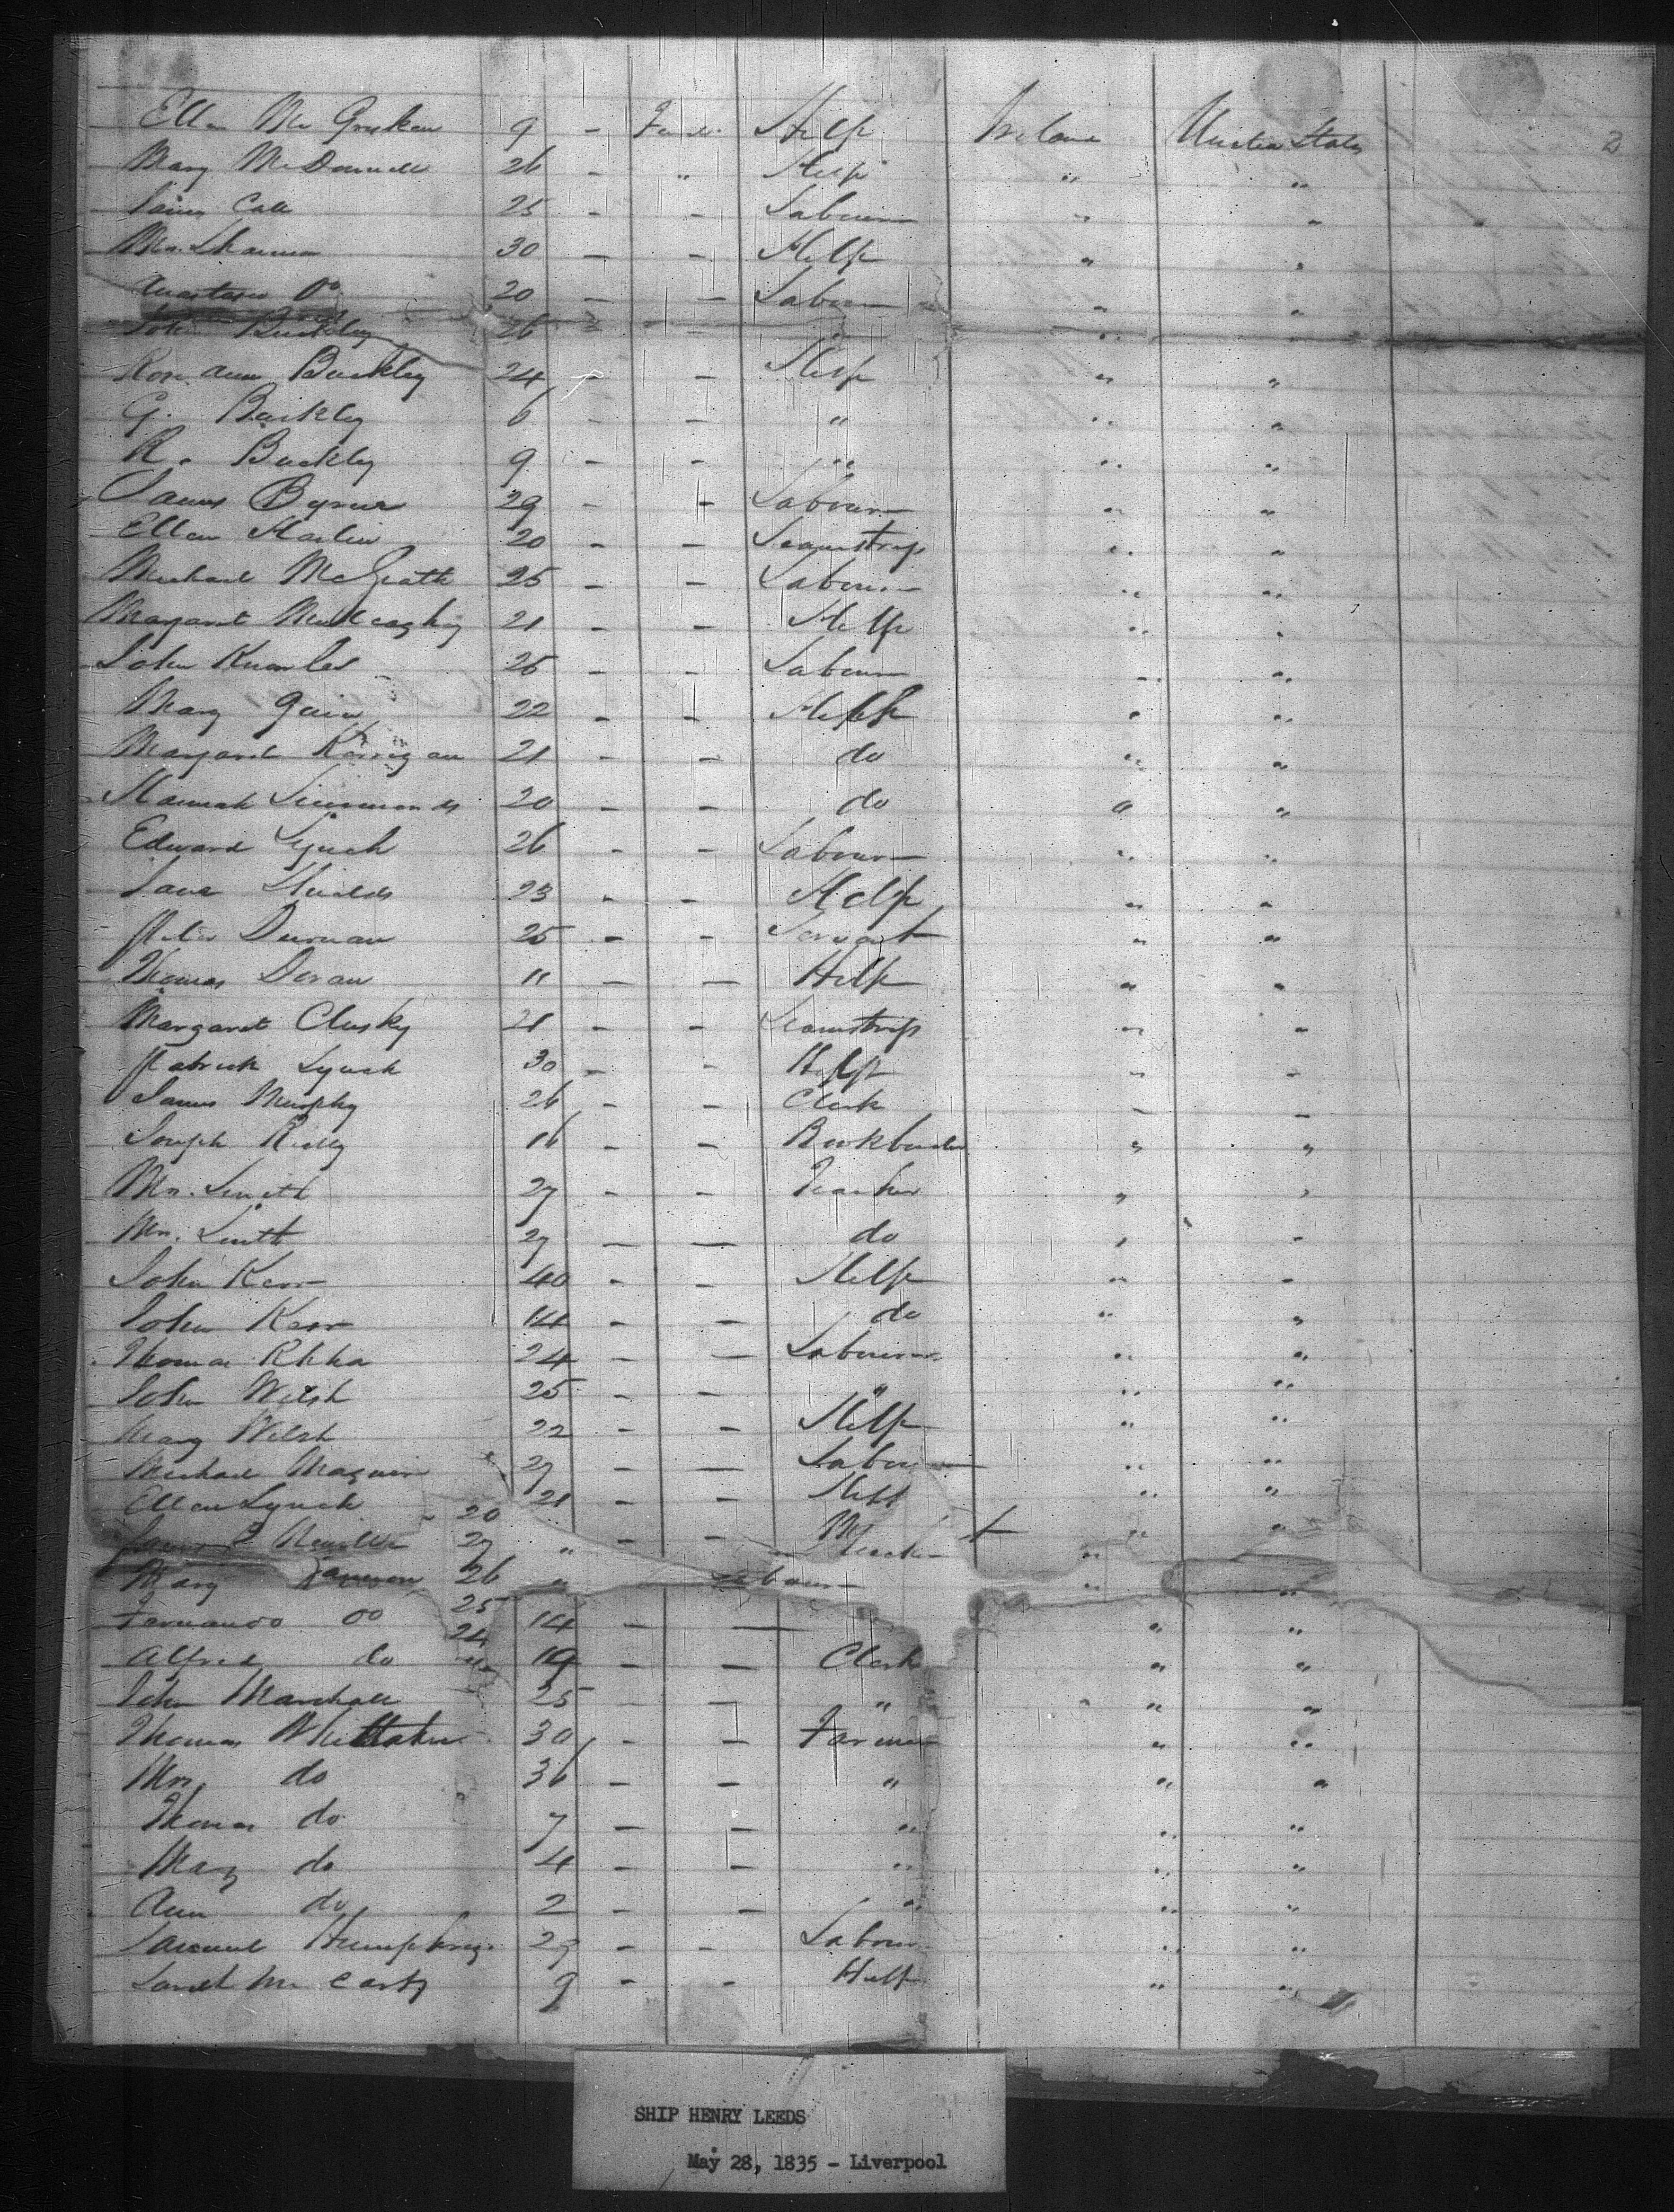 Ellen Mc Gracken 9 - Female Help Ireland United States 2
Mary McDonnell 26 - " Help " "
James Call 25 - - Labourer " "
Mrs. Shannon 30 - - Help " "
Anastasia Do 20 - - Labourer " "
John Buckley 26 - - " "
Rose Ann Buckley 24 - - Help " "
G. Buckley 6 - - " " "
R. Buckley 9 - - " " "
James Byrne 29 - - Labourer " "
Ellen Harlin 20 - - Seamstress " "
Michael McGrath 25 - - Labourer " "
Margaret Mulcaghy 21 - - Help " "
John Knowles 25 - - Labourer " "
Mary 22 - - Help " "
Margaret Kerrigan 21 - - do " "
Hannah Simmonds 20 - - do " "
Edward Lynch 26 - - Labourer " "
Jane Shields 23 - - Help " "
Peter Durnan 25 - - Servant " "
Thomas Doran 11 - - Help " "
Margaret Clusky 21 - - Seamstress " "
Patrick Lynch 30 - - Help " "
James Murphy 26 - - Clerk - -
Joseph Reilly 16 - - Bookbinder " "
Mr. Smith 27 - - Teacher " "
Mrs. Smith 27 - - do " "
John Kerr 40 - - Help " "
John Kerr 14 - - do " "
Thomas 24 - - Labourer " "
John Welsh 25 - - " " "
Mary Welsh 22 - - Help " "
Michael Maguire 27 - - Labourer " "
Ellen Lynch 21 - - Help " "
20
James 27 " - - " "
Mary 26 " Labourer " "
25
Fernando do 14 - - " "
24
Alfred do 19 - - Clerk " "
John Marshall 25 - - " " "
Thomas Whittaker 30 - - Farmer " "
Mrs. do 36 - - " " "
Thomas do 7 - - " " "
Mary do 4 - - " " "
Ann do 2 - - " " "
Samuel Humphreys 29 - - Labour " "
Mc Carty 9 - - Help " "
SHIP HENRY LEEDS
May 28, 1835 - Liverpool